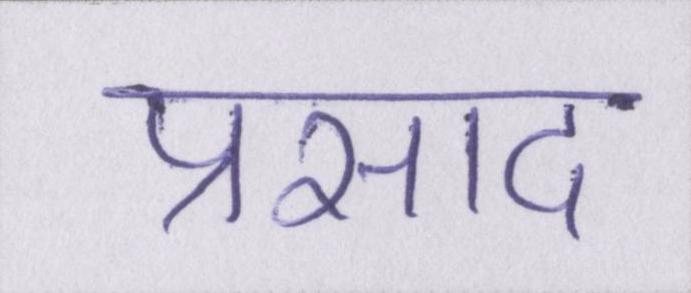 प्रसाद